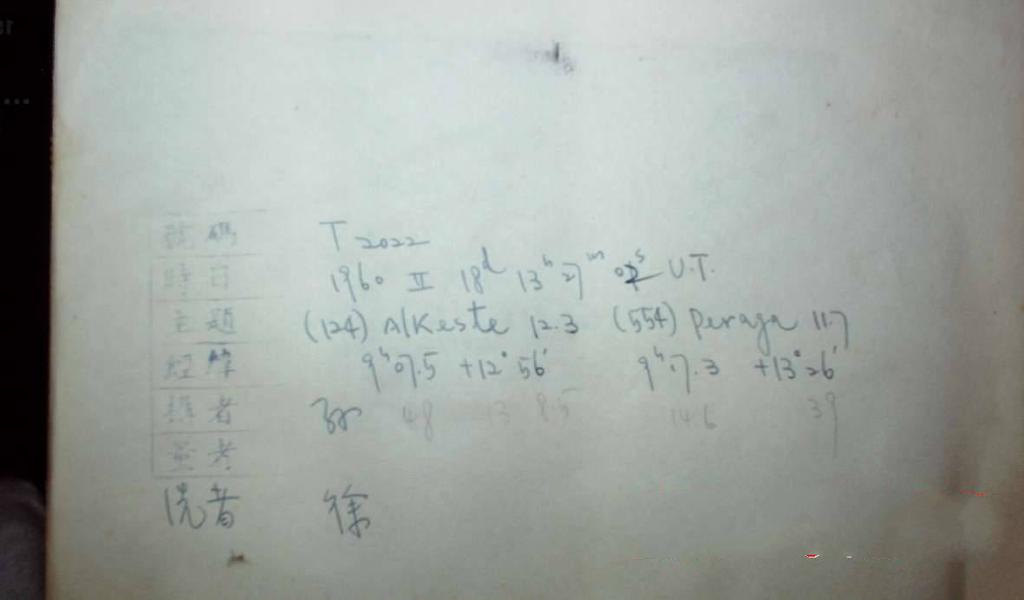 號碼 T 2022
時日 1960 II 18d 13h 27m U.T.
主題 (124) Alkeste 12.3 (554) Peraga 11.7
經緯 9h 07.5 +12° 56' 9h 7.3 +13° 26'
攝者 孙 48 13 8.5 14.6 39
參考
读者 徐